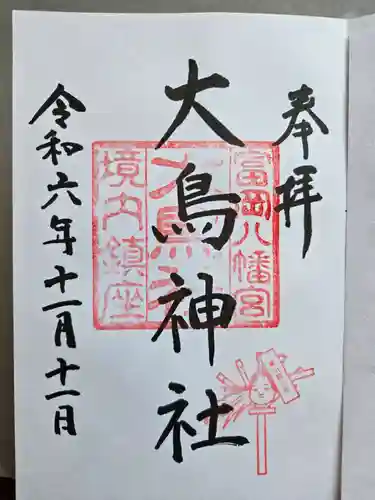 奉拝
大鳥神社
富岡八幡宮
境内鎮座
令和六年十一月十一日